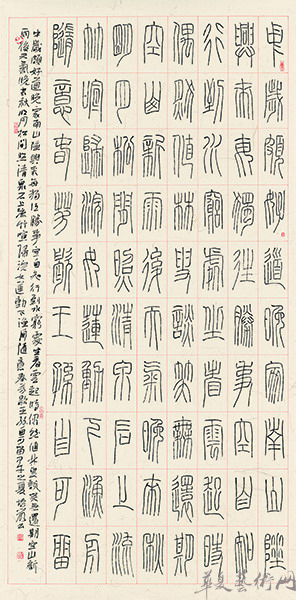 中歲頗好道晚家南山陲
興來每獨往勝事空自知
行到水窮處坐看雲起時
偶然值林叟談笑無還期
空山新雨後天氣晚來秋
明月松間照清泉石上流
竹喧歸浣女蓮動下漁舟
隨意春芳歇王孫自可留
中歲頗好道晚家南山陲興來每獨往勝事空自知行到水窮處坐看雲起時偶然值林叟談笑無還期空山新
雨後天氣晚來秋明月松間照清泉石上流竹喧歸浣女蓮動下漁舟隨意春芳歇王孫自可留
華夏藝術网